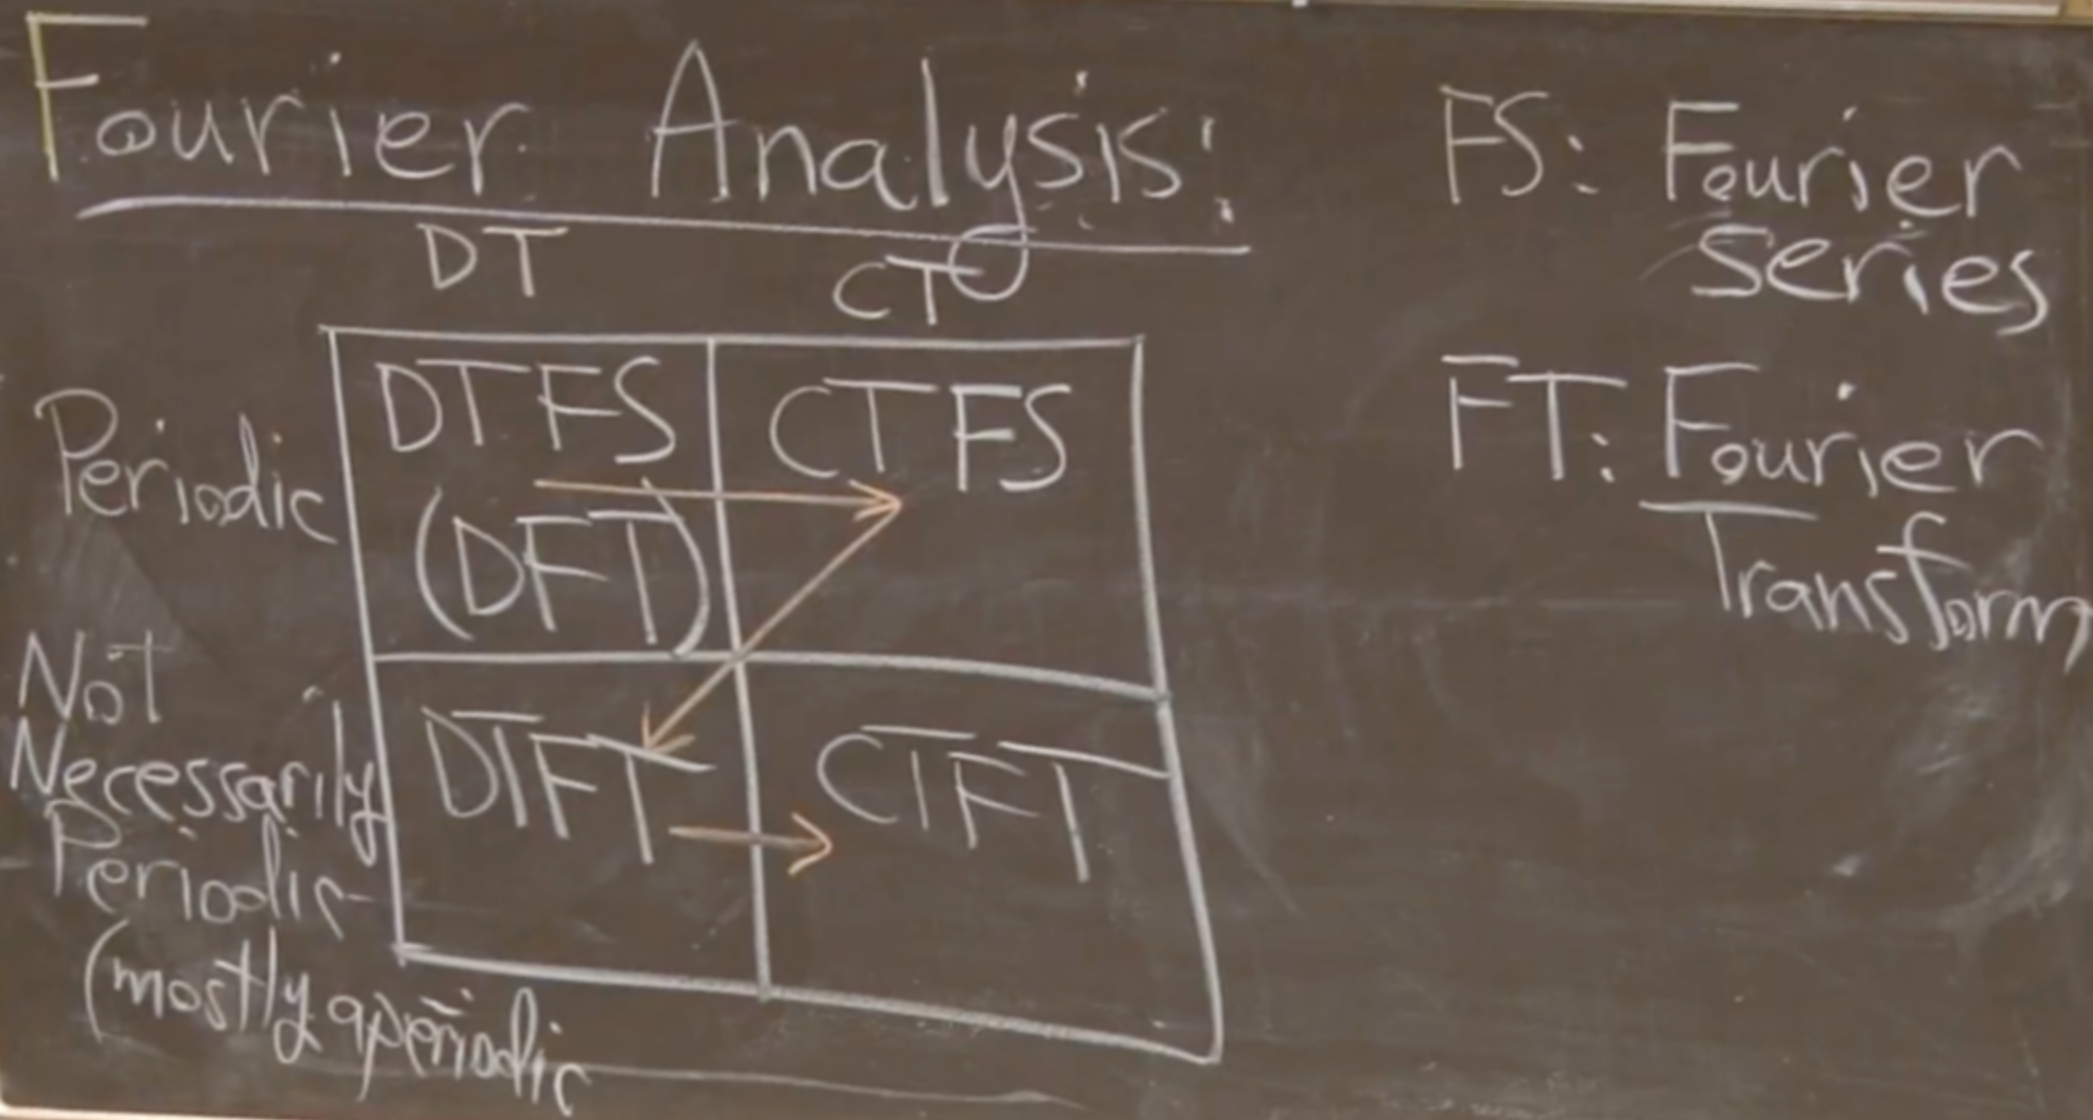 Fourier Analysis:
DT CT
Periodic
DTFS CTFS
(DFT)
Not
Necessarily
Periodic
(mostly aperiodic
DTFT CTFT
FS: Fourier
Series
FT: Fourier
Transform